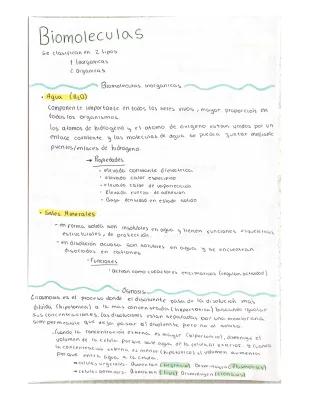 Biomoleculas
Se clasifican en 2 tipos
1 Inorganicas
2 Organicas
Biomoleculas inorganicas
• Agua (H₂O)
Componente importante en todos los seres vivos, mayor proporcion en
todos los organismos.
los atomos de hidrogeno y el atomo de oxigeno estan unidos por un
enlace covalente y las moleculas de agua se pueden juntar mediante
puentes/enlaces de hidrogeno.
→ Propiedades
• elevada constante dielectrica
• elevado calor especifico
• elevado calor de vaporización
• Elevada fuerza de adhesion
• Baja densidad en estado solido
• Sales Minerales
- en forma solida son insolubles en agua y tienen funciones esqueleticas
estructurales, de protección.
- en disolución acuosa son solubles en agua y se encuentran
disociadas en cationes
- Funciones
- Actuan como cofactores enzimaticos (regulan actividad)
Osmosis
La osmosis es el proceso donde el disolvente pasa de la disolución mas
diluida (hipotonica) a la mas concentrada (hipertonica) buscando igualar
sus concentraciones, las disoluciones estan separadas por una membrana
semipermeable que deja pasar al disolvente pero no al soluto.
Cuando la concentracion externa es mayor (hipertonica), disminuye el
volumen de la celula porque sale agua de la celula al exterior, y cuando
la concentracion externa es menor (hipotonica) el volumen aumentara
porque entra agua a la celula.
→ celulas vegetales: Aumentan (turgencia) Disminuyen (Plasmolisis)
→ celulas animales: Aumentan (lisis) Disminuyen (crenacion)